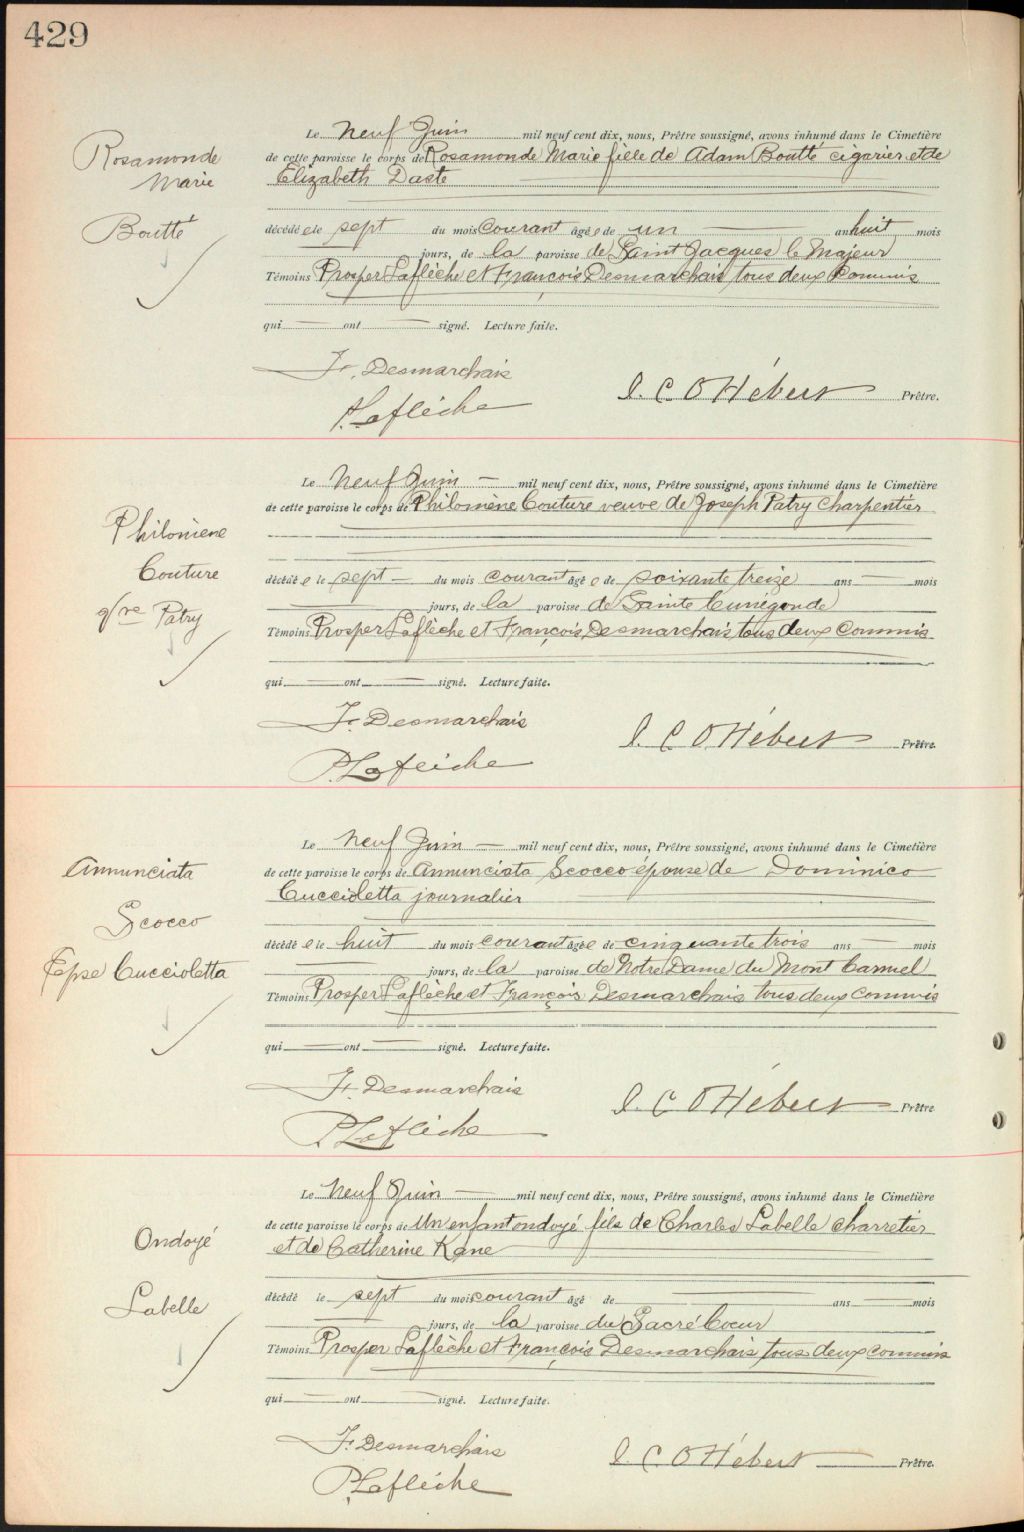 429
Rosamonde
Marie
Boutté
Le Neuf Juin mil neuf cent dix, nous, Prêtre soussigné, avons inhumé dans le Cimetière
de cette paroisse le corps de Rosamonde Marie fille de Adam Boutté cigarier et de
Elizabeth Daste
décédé e le sept du mois courant âgé e de un an huit mois
jours, de la paroisse de Saint Jacques le Majeur
Témoins Prosper Laflèche et François Desmarchais tous deux Commis
qui ont signé. Lecture faite.
Fr. Desmarchais
P. Laflèche
J. C. O. Hébert Prêtre.
Philomène
Couture
Vve Patry
Le Neuf Juin mil neuf cent dix, nous, Prêtre soussigné, avons inhumé dans le Cimetière
de cette paroisse le corps de Philomène Couture veuve de Joseph Patry charpentier
décédé e le sept du mois courant âgé e de soixante treize ans mois
jours, de la paroisse de Sainte Cunégonde
Témoins Prosper Laflèche et François Desmarchais tous deux Commis
qui ont signé. Lecture faite.
Fr. Desmarchais
P. Laflèche
J. C. O. Hébert Prêtre.
Annunciata
Scocco
Epse Cuccioletta
Le Neuf Juin mil neuf cent dix, nous, Prêtre soussigné, avons inhumé dans le Cimetière
de cette paroisse le corps de Annunciata Scocco épouse de Dominico
Cuccioletta journalier
décédé e le huit du mois courant âgé e de cinquante trois ans mois
jours, de la paroisse de Notre Dame du Mont Carmel
Témoins Prosper Laflèche et François Desmarchais tous deux commis
qui ont signé. Lecture faite.
Fr. Desmarchais
P. Laflèche
J. C. O. Hébert Prêtre
Ondoyé
Labelle
Le Neuf Juin mil neuf cent dix, nous, Prêtre soussigné, avons inhumé dans le Cimetière
de cette paroisse le corps de Un enfant ondoyé fils de Charles Labelle charretier
et de Catherine Kane
décédé le sept du mois courant âgé de ans mois
jours, de la paroisse du Sacré Coeur
Témoins Prosper Laflèche et François Desmarchais tous deux commis
qui ont signé. Lecture faite.
Fr. Desmarchais
P. Laflèche
J. C. O. Hébert Prêtre.